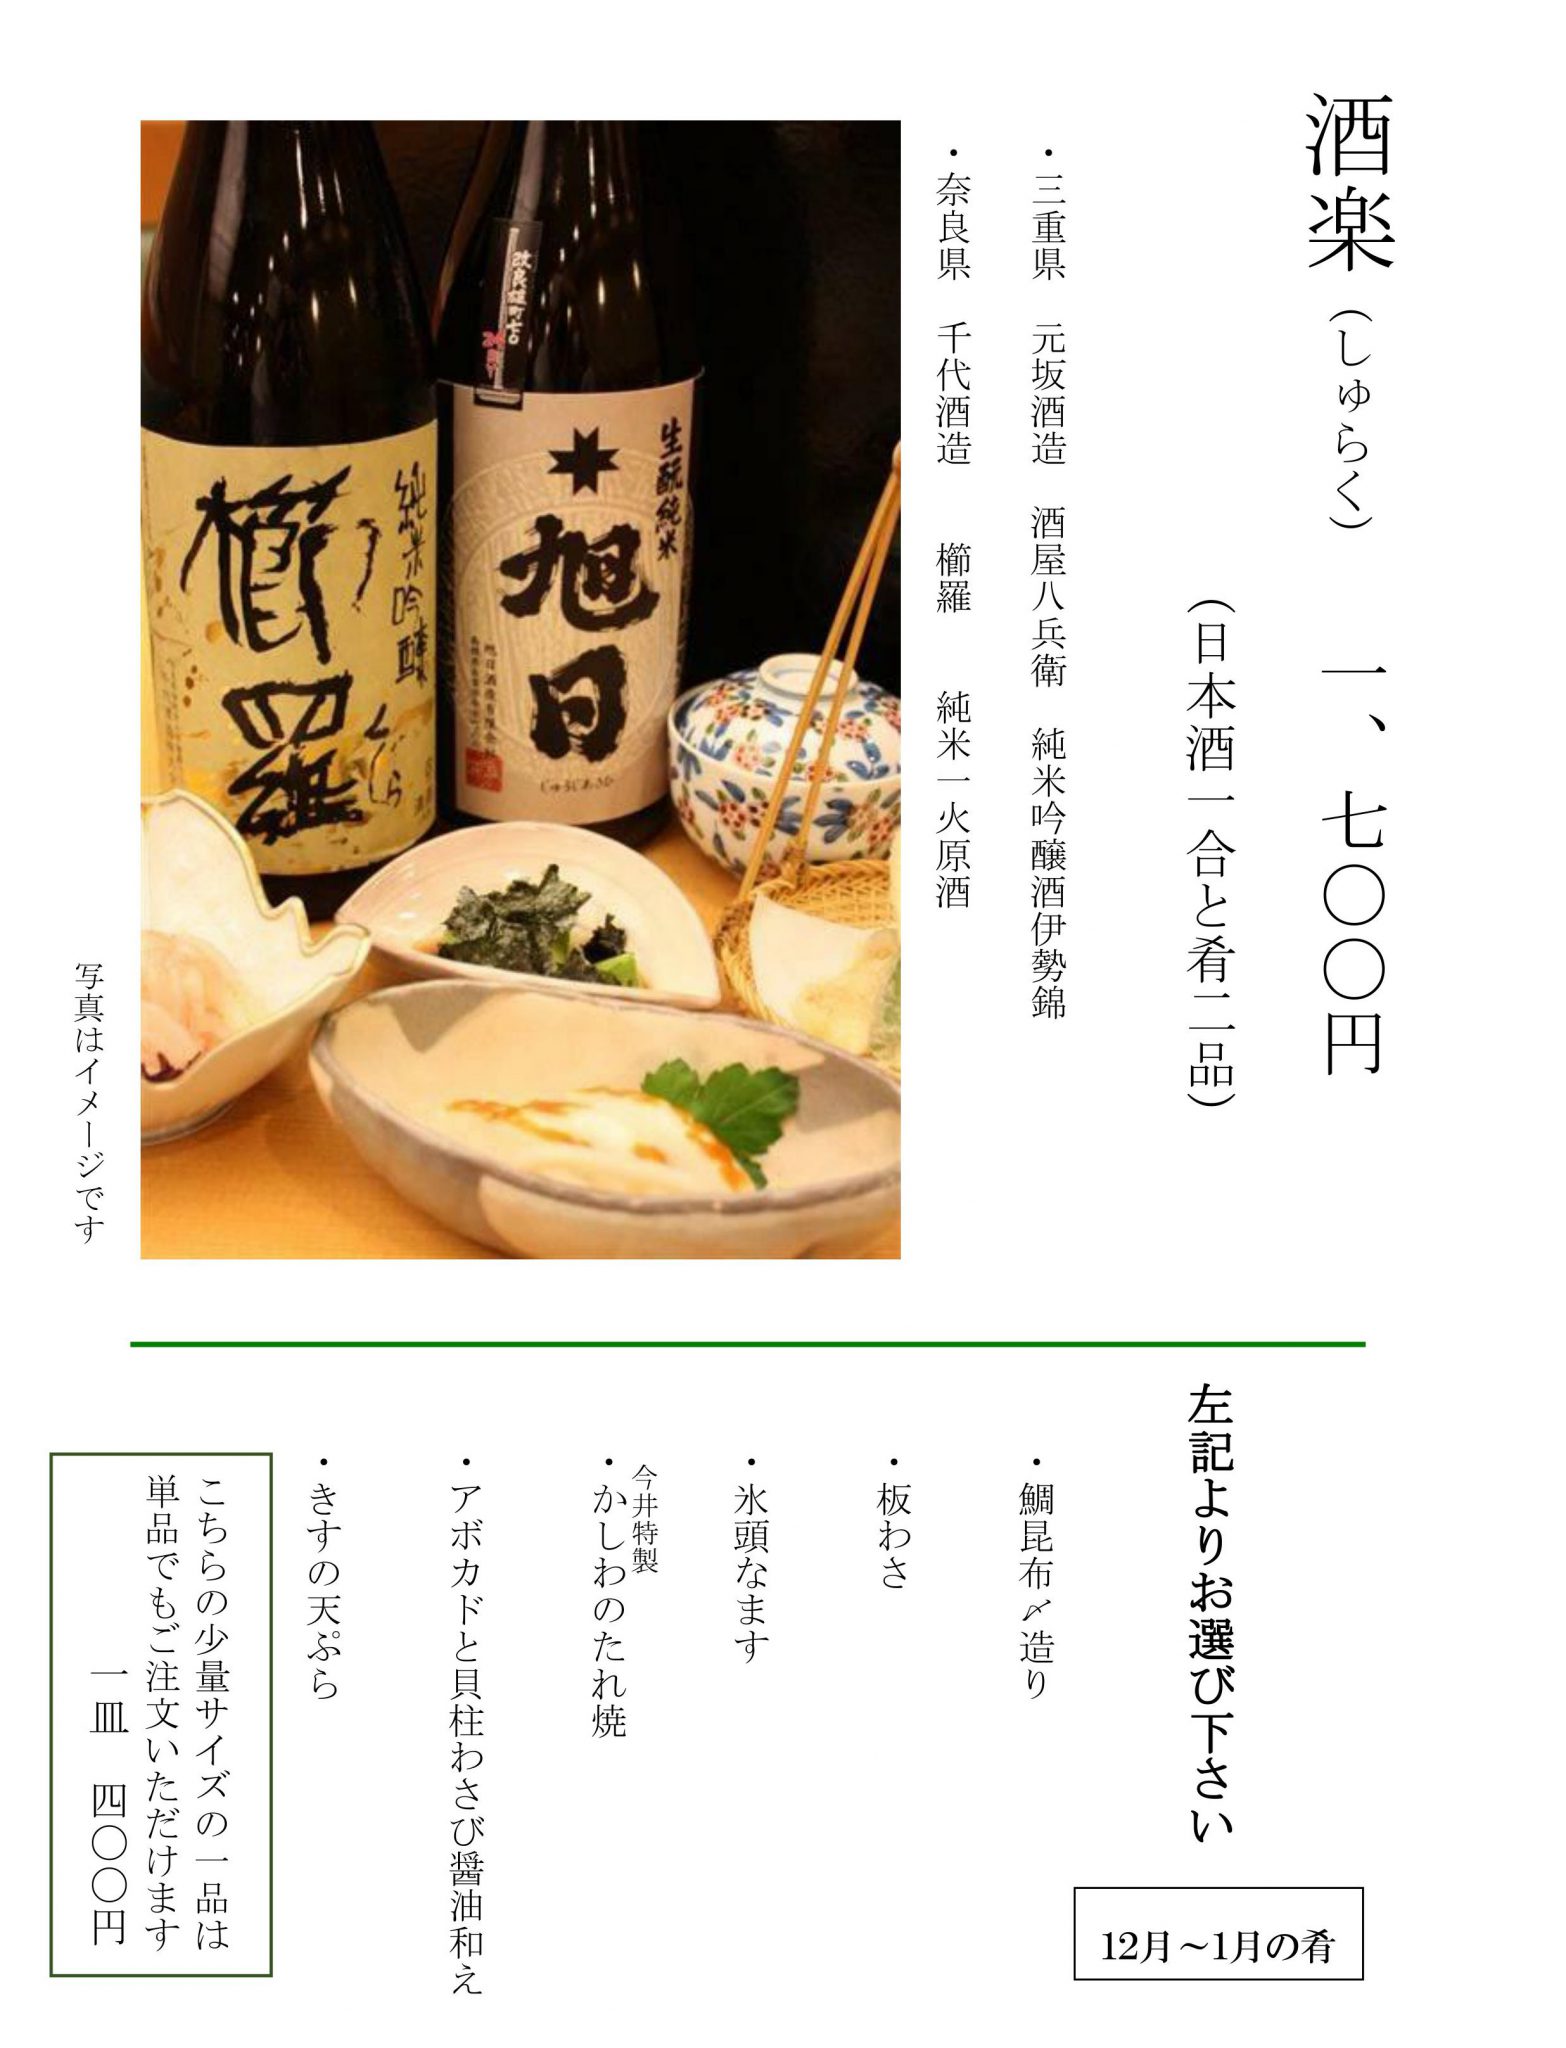 酒楽（しゅらく）　一、七〇〇円
（日本酒一合と肴二品）
・三重県　元坂酒造　酒屋八兵衛　純米吟醸酒伊勢錦
・奈良県　千代酒造　櫛羅　純米一火原酒
改良雄町七〇
生酛純米
旭日
じゅうじあさひ
純米吟醸
櫛羅
くじら
写真はイメージです
左記よりお選び下さい
12月～1月の肴
・鯛昆布〆造り
・板わさ
・氷頭なます
今井特製
・かしわのたれ焼
・アボカドと貝柱わさび醤油和え
・きすの天ぷら
こちらの少量サイズの一品は
単品でもご注文いただけます
一皿　四〇〇円